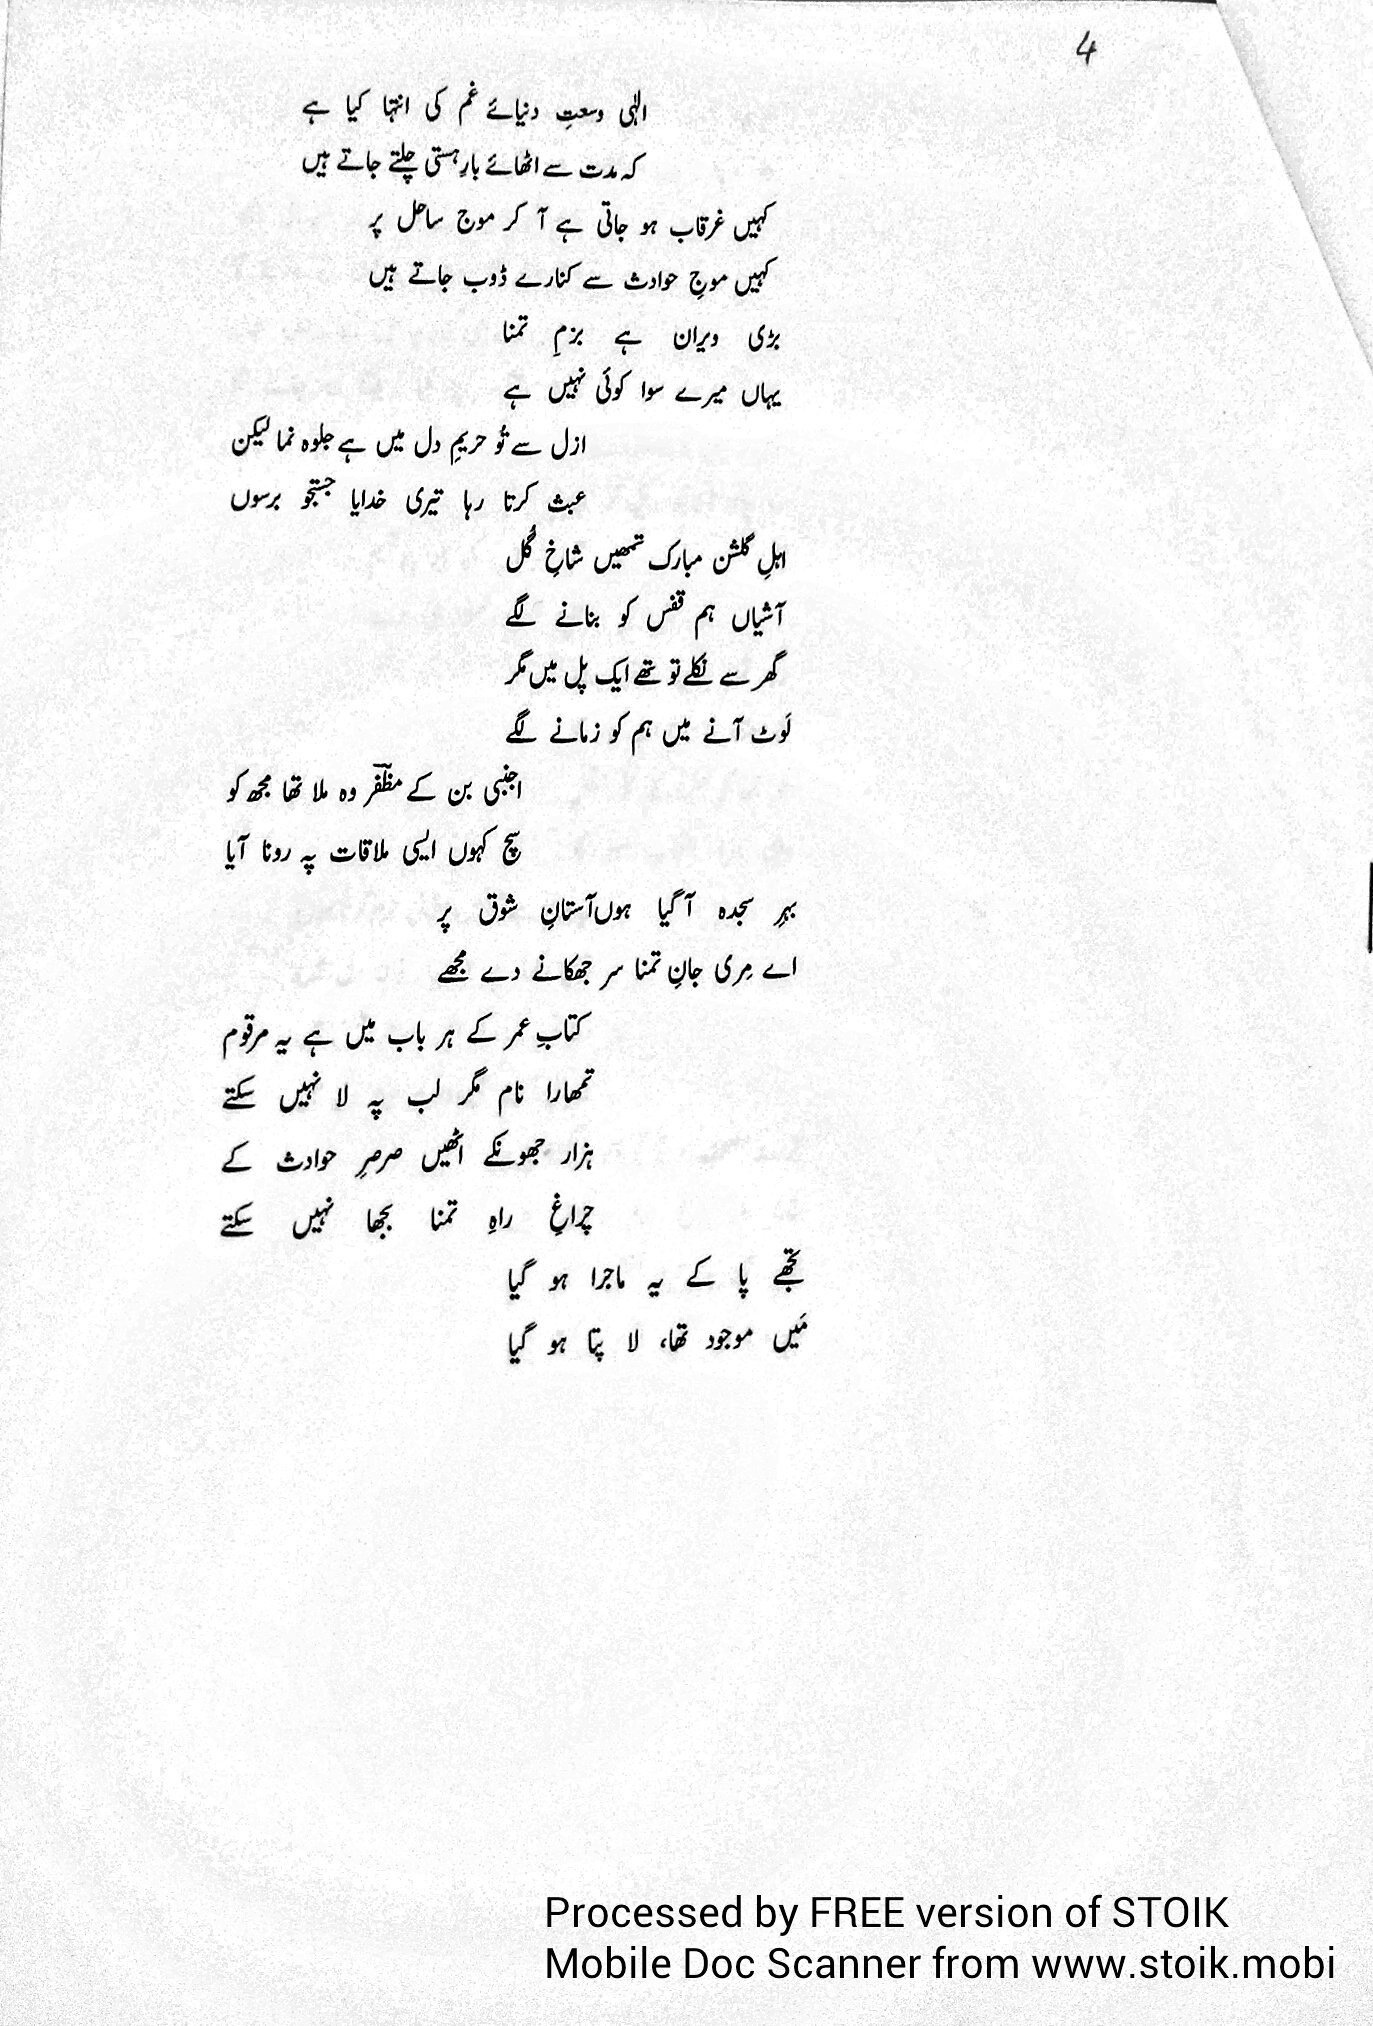 4
الٰہی وسعتِ دنیائے غم کی انتہا کیا ہے
کہ مدت سے اٹھائے بارِ ہستی چلتے جاتے ہیں
کہیں غرقاب ہو جاتی ہے آ کر موج ساحل پر
کہیں موجِ حوادث سے کنارے ڈوب جاتے ہیں
بڑی ویران ہے بزمِ تمنا
یہاں میرے سوا کوئی نہیں ہے
ازل سے تُو حریمِ دل میں ہے جلوہ نما لیکن
عبث کرتا رہا تیری خدایا جستجو برسوں
اہلِ گلشن مبارک تمھیں شاخِ گُل
آشیاں ہم قفس کو بنانے لگے
گھر سے نکلے تو تھے ایک پل میں مگر
لَوٹ آنے میں ہم کو زمانے لگے
اجنبی بن کے مظفؔر وہ ملا تھا مجھ کو
سچ کہوں ایسی ملاقات پہ رونا آیا
بہرِ سجدہ آ گیا ہوں آستانِ شوق پر
اے مِری جانِ تمنا سر جھکانے دے مجھے
کتابِ عمر کے ہر باب میں ہے یہ مرقوم
تمھارا نام مگر لب پہ لا نہیں سکتے
ہزار جھونکے اٹھیں صرصرِ حوادث کے
چراغِ راہِ تمنا بجھا نہیں سکتے
تجھے پا کے یہ ماجرا ہو گیا
مَیں موجود تھا، لا پتا ہو گیا
Processed by FREE version of STOIK
Mobile Doc Scanner from www.stoik.mobi